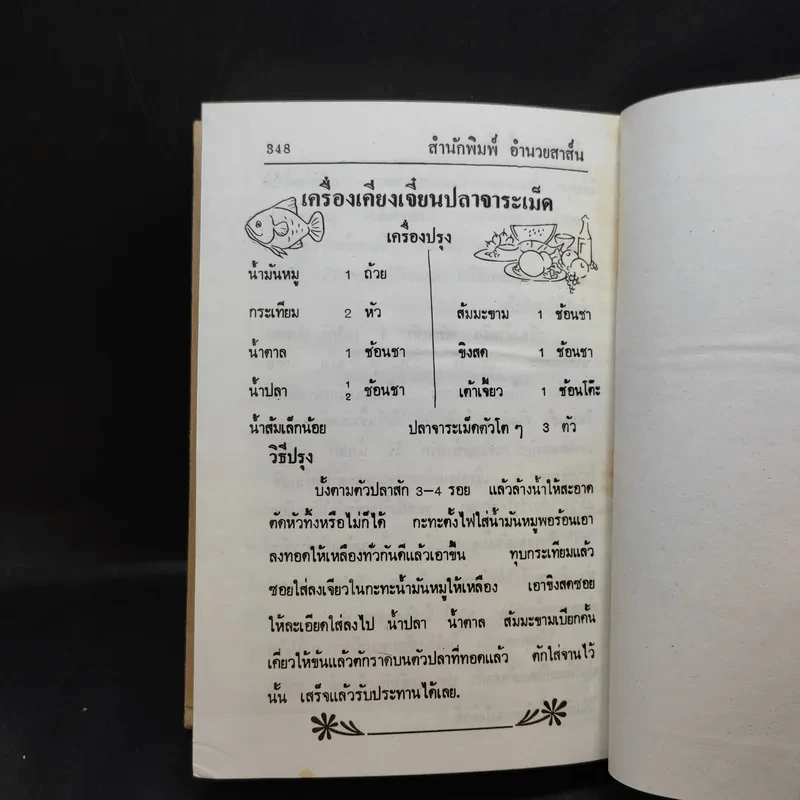 348 สำนักพิมพ์ อำนวยสาส์น
เครื่องเคียงเจี๋ยนปลาจาระเม็ด
เครื่องปรุง
น้ำมันหมู 1 ถ้วย
กระเทียม 2 หัว ส้มมะขาม 1 ช้อนชา
น้ำตาล 1 ช้อนชา ขิงสด 1 ช้อนชา
น้ำปลา 1/2 ช้อนชา เต้าเจี้ยว 1 ช้อนโต๊ะ
น้ำส้มเล็กน้อย ปลาจาระเม็ดตัวโต ๆ 3 ตัว
วิธีปรุง
บั้งตามตัวปลาสัก 3-4 รอย แล้วล้างน้ำให้สะอาด
ตัดหัวทิ้งหรือไม่ก็ได้ กะทะตั้งไฟใส่น้ำมันหมูพอร้อนเอา
ลงทอดให้เหลืองทั่วกันดีแล้วเอาขึ้น ทุบกระเทียมแล้ว
ซอยใส่ลงเจียวในกะทะน้ำมันหมูให้เหลือง เอาขิงสดซอย
ให้ละเอียดใส่ลงไป น้ำปลา น้ำตาล ส้มมะขามเปียกคั้น
เคี่ยวให้ข้นแล้วตักราดบนตัวปลาที่ทอดแล้ว ตักใส่จานไว้
นั้น เสร็จแล้วรับประทานได้เลย.